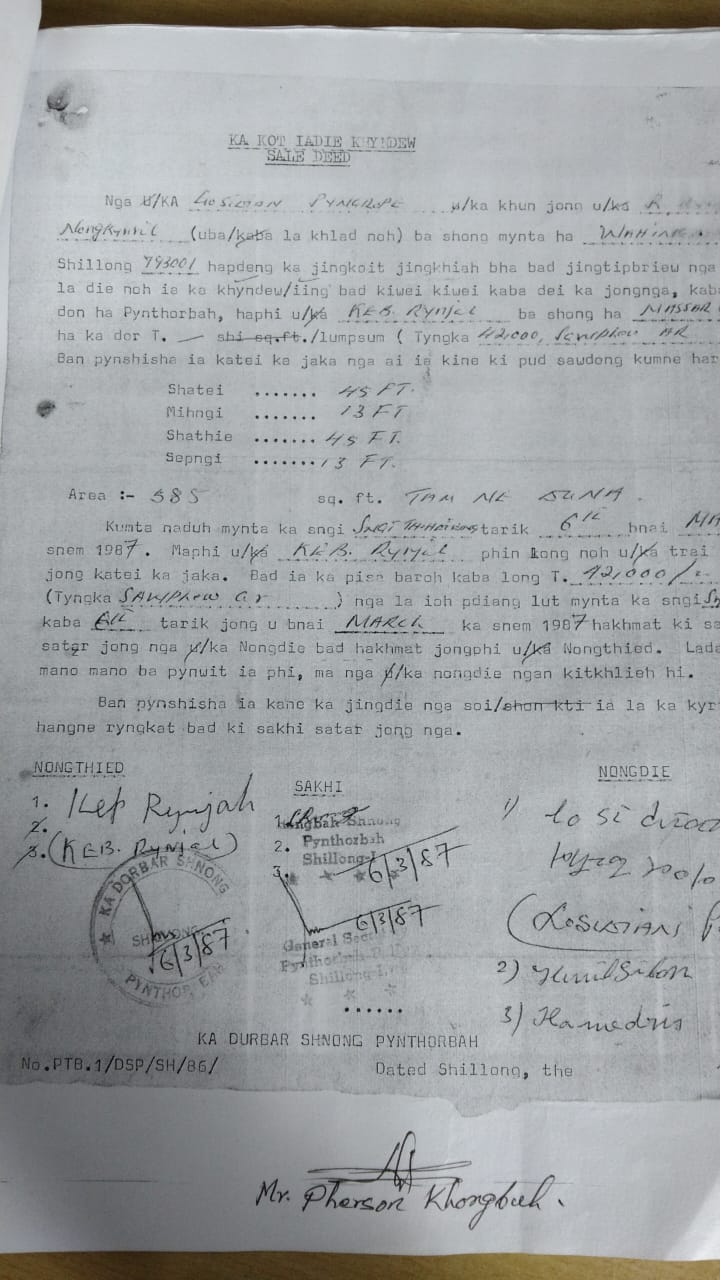 KA KOT IADIE KHYNDEW
SALE DEED
Nga U/KA PYNGROPE u/ka khun jong u/ka
(uba/kaba la khlad noh) ba shong mynta ha
Shillong 793001 hapdeng ka jingkoit jingkhiah bha bad jingtipbriew nga
la die noh ia ka khyndew/iing bad kiwei kiwei kaba dei ka jongnga, kab
don ha Pynthorbah, haphi u/ka KEB. RYNJAH ba shong ha MASSAR
ha ka dor T. — shi sq.ft./lumpsum ( Tyngka 42,000, Sawphew AR
Ban pynshisha ia katei ka jaka nga ai ia kine ki pud sawdong kumne har
Shatei ....... 45 FT.
Mihngi ....... 13 FT
Shathie ....... 45 FT.
Sepngi ....... 13 FT.
Area :- 585 sq. ft. TAM NE DUNA.
Kumta naduh mynta ka sngi tarik 6th bnai MA
snem 1987. Maphi u/ka KEB. Rynjah phin long noh u/ka trai
jong katei ka jaka. Bad ia ka pisa baroh kaba long T. 42,000/-
(Tyngka SAWPHEW ar ) nga la ioh pdiang lut mynta ka sngi
kaba 6th tarik jong u bnai MARCH ka snem 1987 hakhmat ki sa
satar jong nga u/ka Nongdie bad hakhmat jongphi u/ka Nongthied. Lada
mano mano ba pynwit ia phi, ma nga u/ka nongdie ngan kitkhlieh hi.
Ban pynshisha ia kane ka jingdie nga soi/shon kti ia la ka kyr
hangne ryngkat bad ki sakhi satar jong nga.
NONGTHIED
SAKHI
NONGDIE
1. Kep Rynjah
2.
3. (KEB. Rynjah)
KA DORBAR SHNONG
SHILLONG
PYNTHORBAH
6/3/87
1.
Rangbah Shnong
2. Pynthorbah
Shillong-1
3.
6/3/87
6/3/87
General Sec
Pynthorbah
Shillong
1)
2)
3)
......
KA DURBAR SHNONG PYNTHORBAH
No.PTB.1/DSP/SH/86/ Dated Shillong, the
Mr. Pherson Khongbuh.